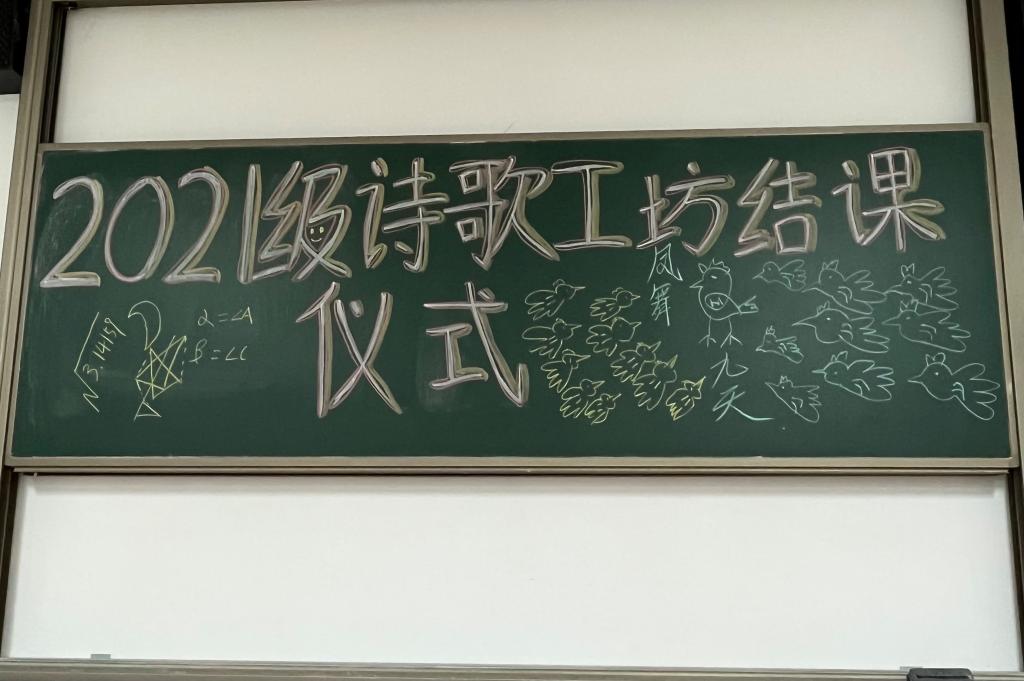 2021级诗歌工坊结课
仪式
3.14159
α=∠A
β=∠C
凤舞
九天